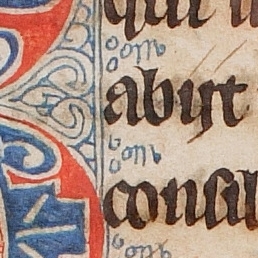 qui
abijt
consil